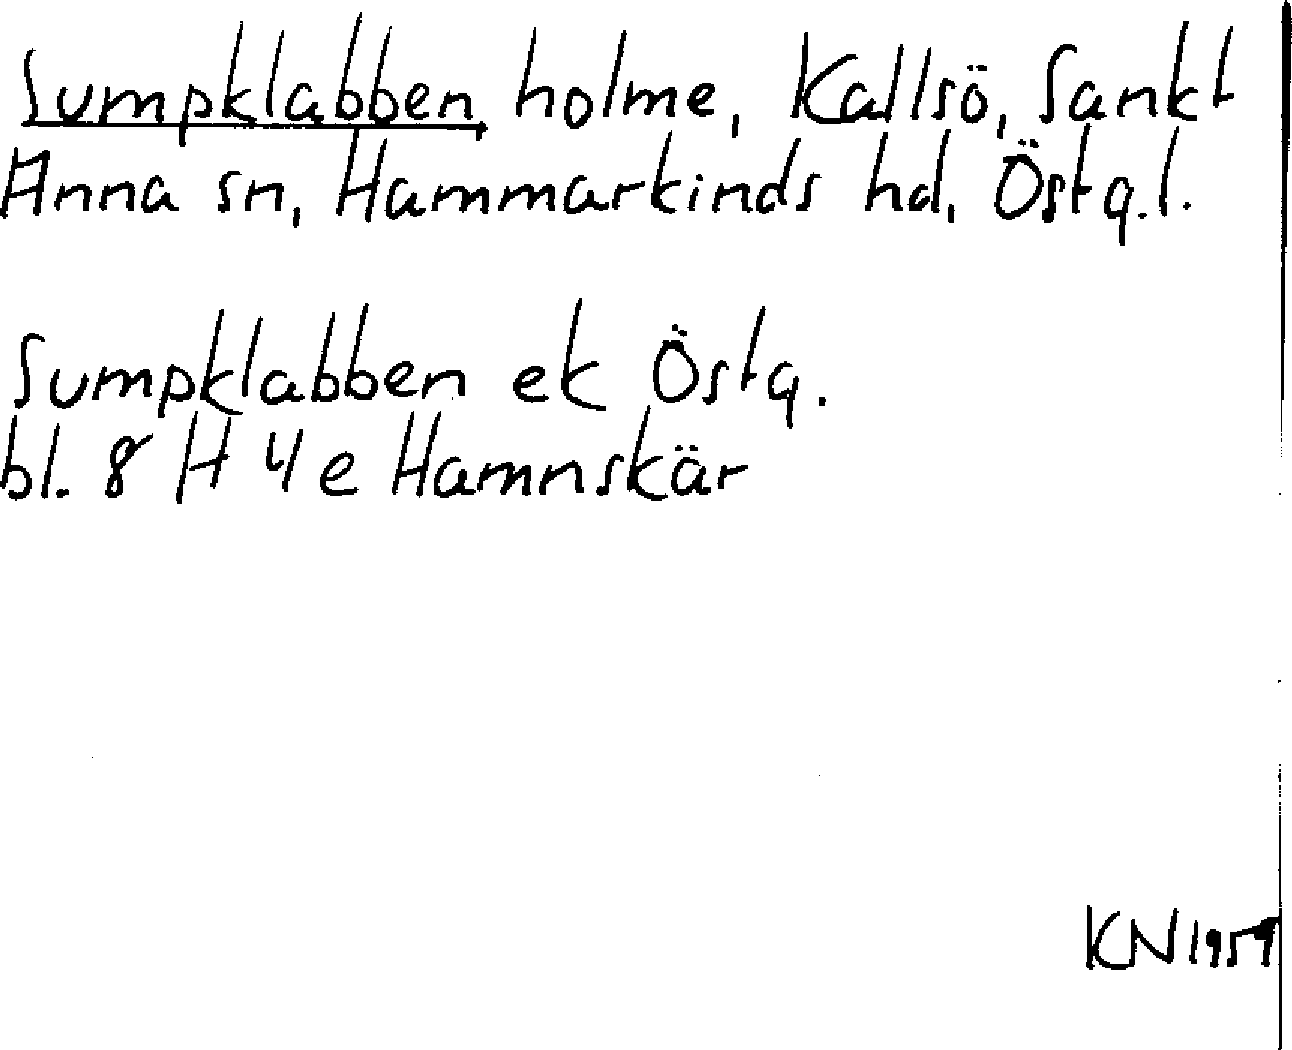 Sumpklabben, holme, Kallsö, Sankt
Anna sn, Hammarkinds hd, Östg.l.
Sumpklabben ek Östg.
bl. 8 H 4 e Hamnskär
KN 1959